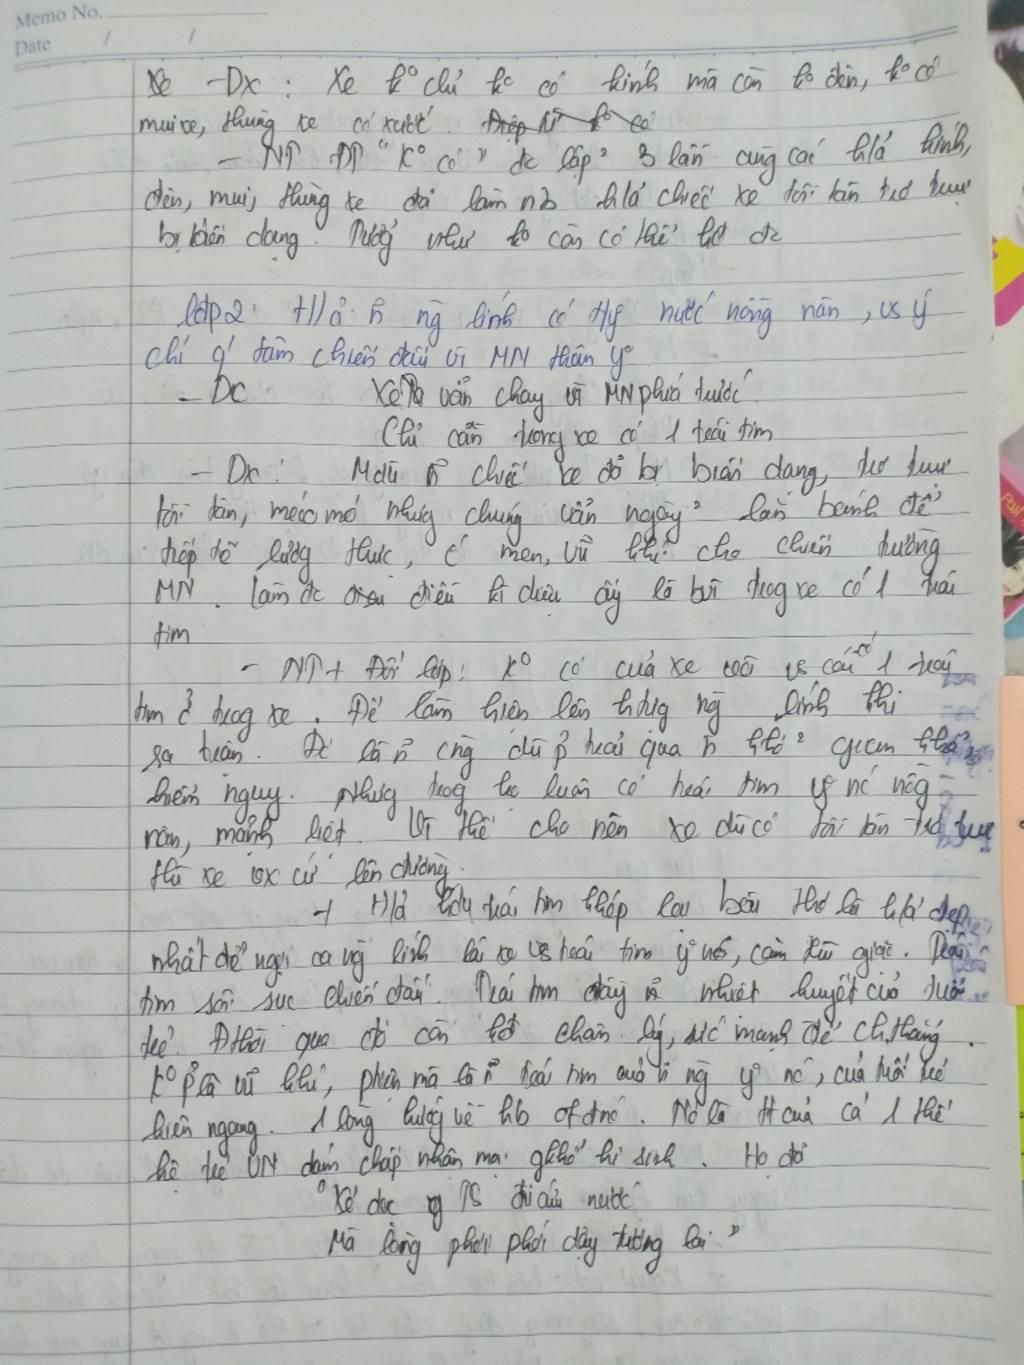 Memo No.
Date / /
Xe - Dx : Xe k° chỉ k° có kính mà còn k° đèn, k° có
mui xe, thùng xe có xước.
- NT ĐT "K° có" đc lặp² 3 lần cùng các h/ả kính,
đèn, mui, thùng xe đã làm nb h/ả chiếc xe tồi tàn trơ trụi
bị biến dạng. Tưởng như k° còn có thể hđ đc
Lớp 2: H/ả ng lính có ty nước nồng nàn, vs ý
chí q' tâm chiến đấu vì MN thân y°
- DC Xe vẫn chạy vì MN phía trước
Chỉ cần trong xe có 1 trái tim
- Dx: Mdù chiếc xe đó bị biến dạng, trơ trụi
tồi tàn, méo mó nhưg chúng vẫn ngày² lăn bánh để
tiếp tế lươg thực, men, vũ khí cho chiến trường
MN. Làm đc điều kì diệu ấy là bởi trog xe có 1 trái
tim
- NT + Đối lập: K° có của xe với vs cái có 1 trái
tim ở trog xe. Để làm hiện lên hìng ng lính thi
sa trườn. Đó là dù p trải qua khó² gian khổ,
hiểm nguy. Nhưg trog họ luôn có trái tim y nc nồg
nàn, mãnh liệt. Vì thế cho nên xe dù có tồi tàn trơ trụi
thì xe vx cứ lên đường.
+ H/ả trái tim khép lại bài thơ là h/ả đẹp
nhất để ngợi ca ng lính lái xe vs trái tim y nc, căm thù giặc. Trái
tim sôi sục chiến đấu. Trái tim đầy nhiệt huyết của tuổi
trẻ. Đthời qua đó còn chân lý, sức mạnh để ch.thắng.
K° p là vũ khí, phím mà là trái tim của ng y° nc, của tuổi trẻ
hiên ngang. 1 lòng hướg về hb of đnc. Nó là của cả 1 thế
hệ trẻ VN dám chấp nhận mọi gkhổ hi sinh. Họ đã
"Xẻ dọc TS đi cứu nước
Mà lòng phơi phới dậy tương lai"